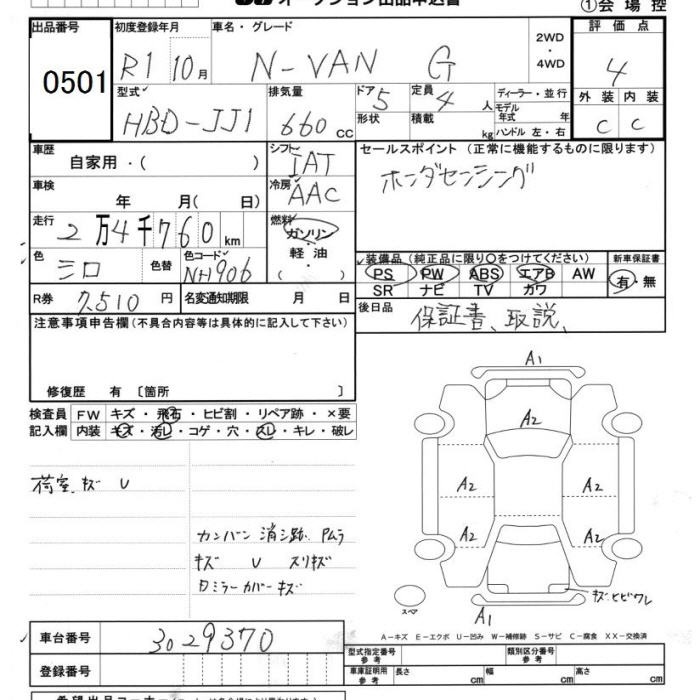 オークション出品申込書
①会場控
出品番号 0501
初度登録年月 R1 10月
車名・グレード N-VAN G
2WD・4WD
評価点 4
外装 C 内装 C
型式 HBD-JJ1
排気量 660 cc
ドア 5 形状
定員 4人 積載 kg
ディーラー・並行
モデル年式 年
ハンドル 左・右
車歴 自家用・( )
シフト IAT
セールスポイント (正常に機能するものに限ります)
ホンダセンシング
車検 年 月( 日)
冷房 AAC
走行 2万4千760km
燃料 ガソリン・軽油・( )
色 シロ 色替 色コード NH906
装備品 (純正品に限り〇をつけてください)
PS PW ABS エアB AW
SR ナビ TV カワ
新車保証書 有・無
R券 7,510円 名変通知期限 月 日
後日品 保証書、取説、
注意事項申告欄(不具合内容等は具体的に記入して下さい)
修復歴 有 〔箇所 〕
検査員記入欄
FW キズ・飛石・ヒビ割・リペア跡・×要
内装 キズ・汚レ・コゲ・穴・スレ・キレ・破レ
荷室、キズ U
カンバン 消シ跡 Pムラ
キズ U スリキズ
ミラーカバーキズ
A1
A2
A2 A2
A2 A2
キズ・ヒビワレ
スペア A1
A-キズ E-エクボ U-凹み W-補修跡 S-サビ C-腐食 XX-交換済
車台番号 3029370
型式指定番号 参考 類別区分番号 参考
登録番号
車庫証明用 参考 長さ cm 幅 cm 高さ cm